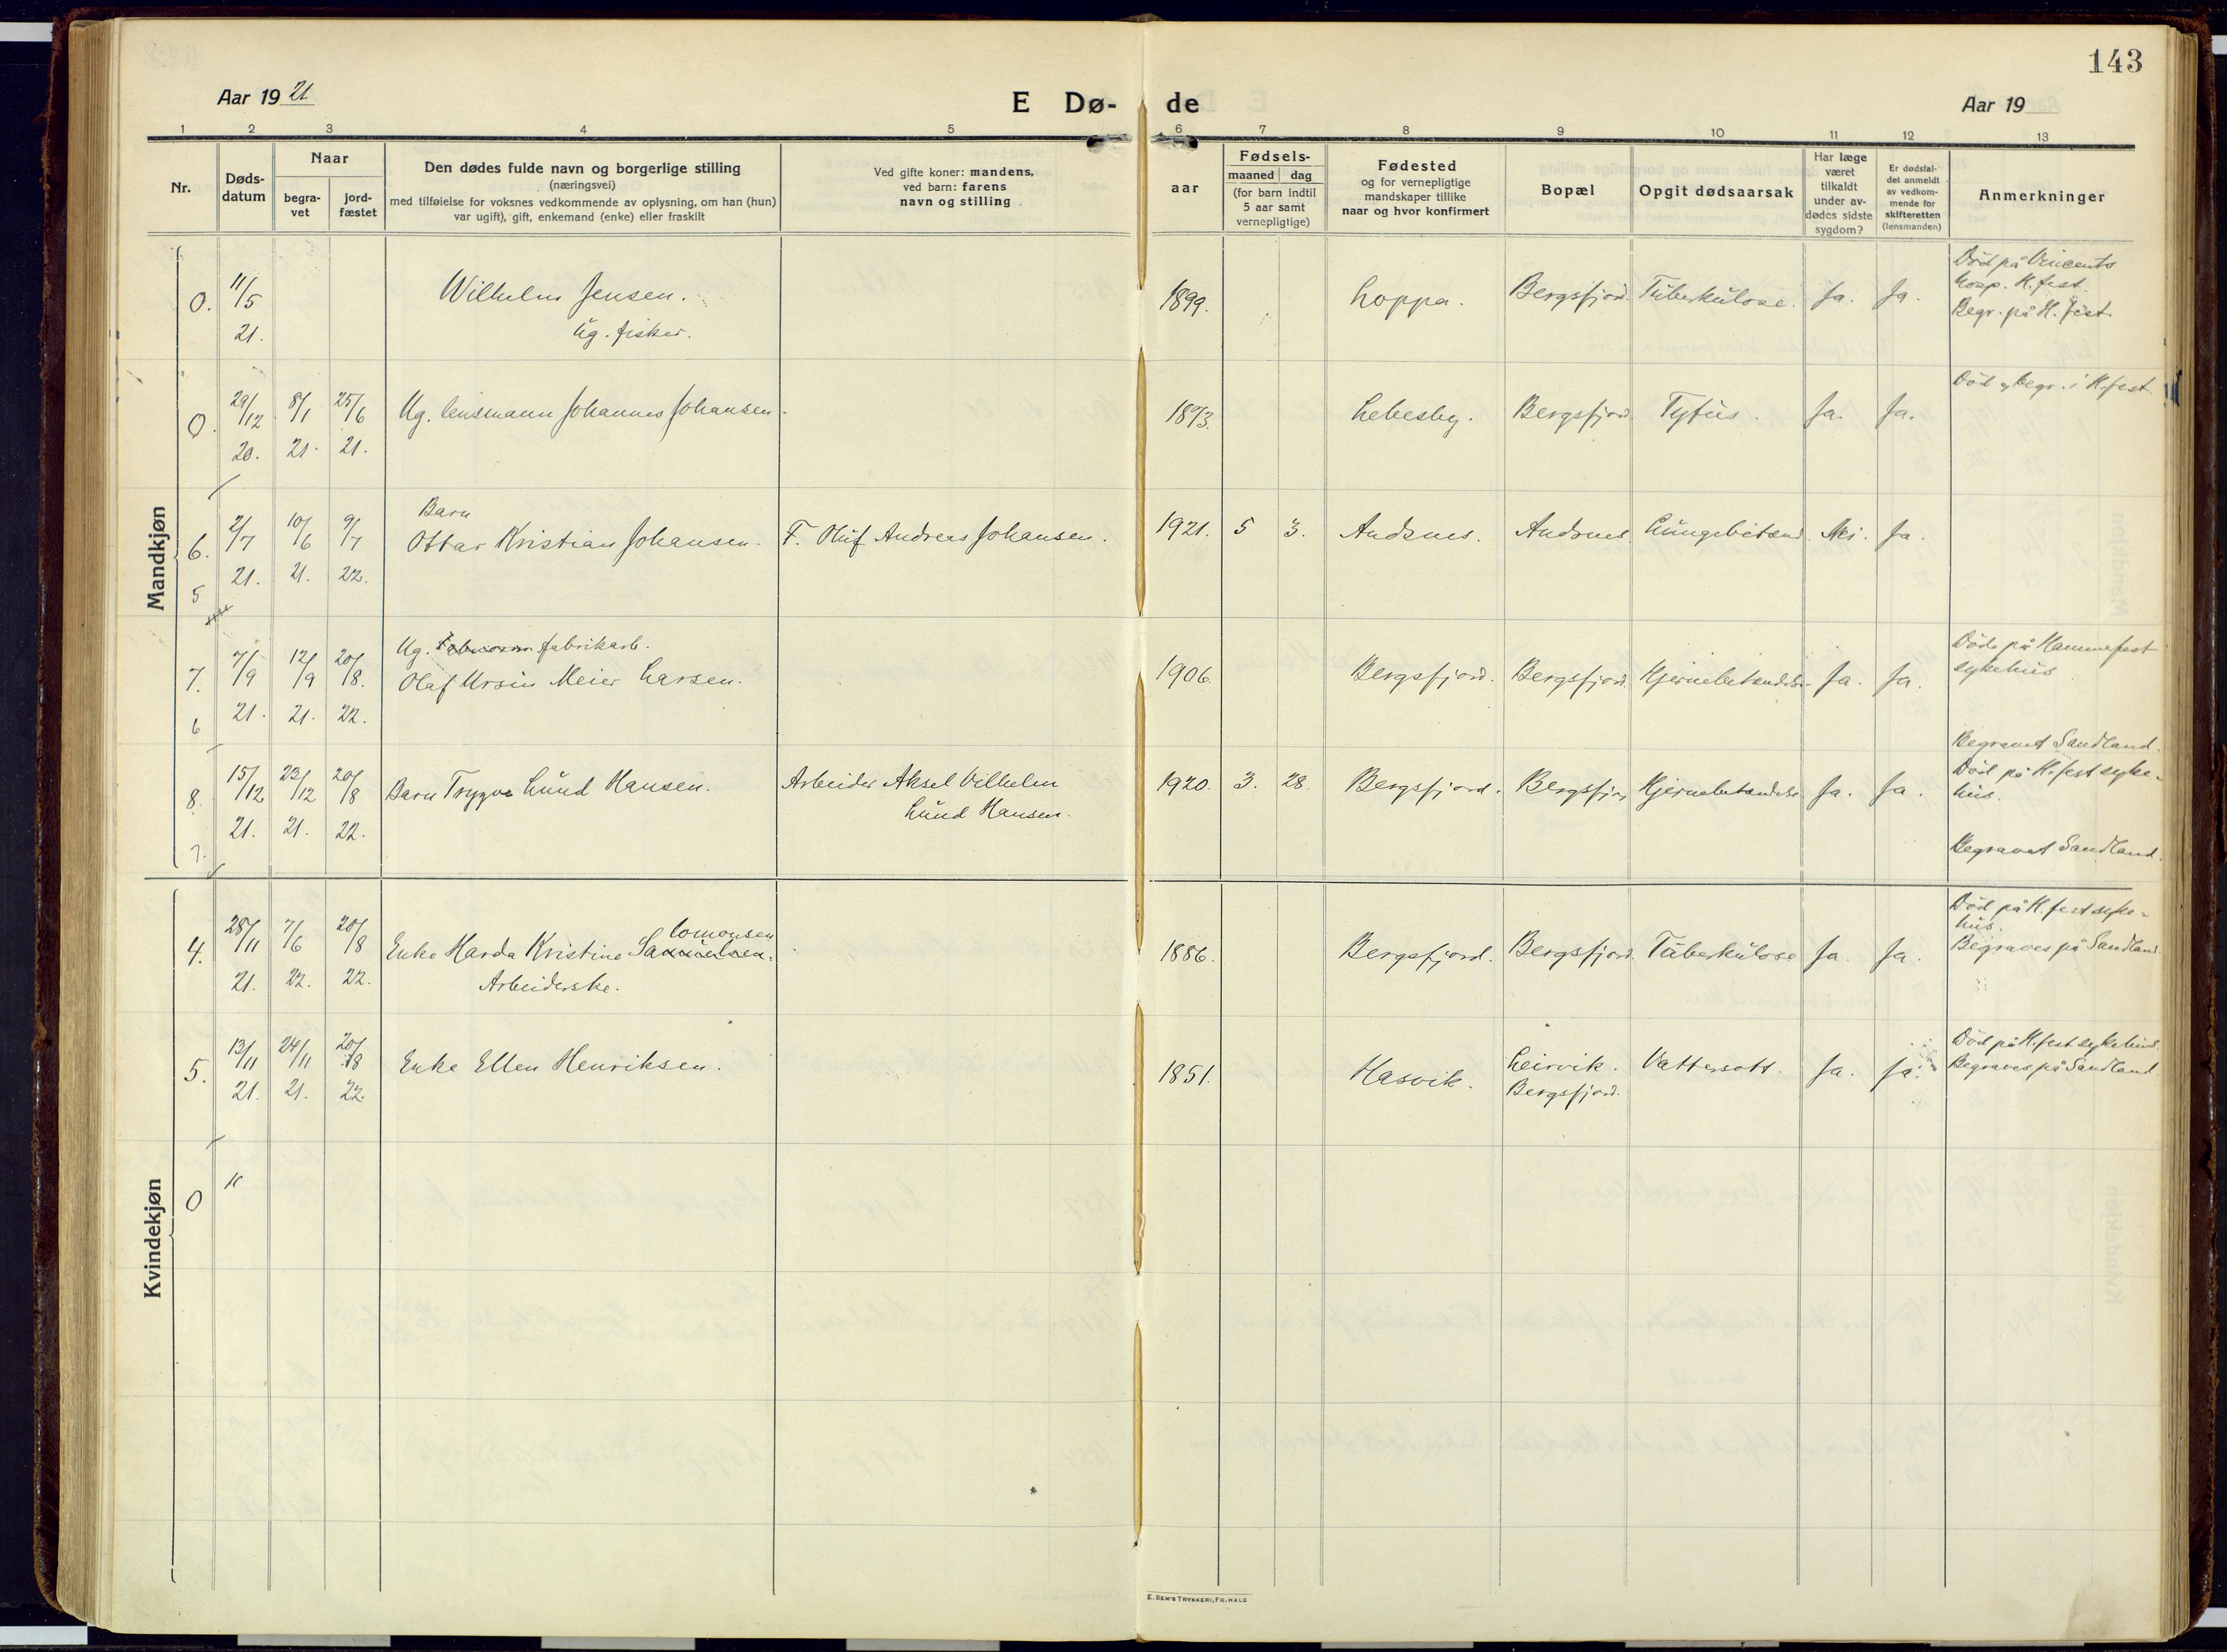 143
Aar 19 21
E Dø-
de
Aar 19
1 2 3 4 5 6 7 8 9 10 11 12 13
Nr.
Døds-
datum
Naar
begra-
vet
jord-
fæstet
Den dødes fulde navn og borgerlige stilling
(næringsvei)
med tilføielse for voksnes vedkommende av oplysning, om han (hun)
var ugift), gift, enkemand (enke) eller fraskilt
Ved gifte koner: mandens,
ved barn: farens
navn og stilling
aar
Fødsels-
maaned dag
(for barn indtil
5 aar samt
vernepligtige)
Fødested
og for vernepligtige
mandskaper tillike
naar og hvor konfirmert
Bopæl
Opgit dødsaarsak
Har læge
været
tilkaldt
under av-
dødes sidste
sygdom?
Er dødsfal-
det anmeldt
av vedkom-
mende for
skifteretten
(lensmanden)
Anmerkninger
Mandkjøn
0. 11/5 Wilhelm Jensen. 1899. Loppa. Bergsfjord. Tuberkulose. Ja. Ja. Død på Vincents
hosp. H.fest.
Begr. på H.fest.
21. Ug. fisker.
0. 29/12 8/1 25/6 Ug. lensmann Johannes Johansen. 1873. Lebesby. Bergsfjord. Tyfus. Ja. Ja. Død og begr. i H.fest
20. 21. 21.
Barn
6. 2/7 10/6 9/7 Ottar Kristian Johansen. F. Oluf Andreas Johansen. 1921. 5 3. Andsnes. Andsnes Lungebetænd. Nei. Ja.
21. 21. 22.
5
Ug. fabrikarb.
7. 7/9 12/9 20/8. Olaf Ursin Meier Larsen. 1906. Bergsfjord. Bergsfjord. Hjernebetændelse. Ja. Ja. Døde på Hammerfest
sykehus
21. 21. 22.
6
Begravet Sandland.
8. 15/12 23/12 20/8 Barn Trygve Lund Hansen. Arbeider Aksel Vilhelm
Lund Hansen. 1920. 3. 28. Bergsfjord. Bergsfjord Hjernebetændelse. Ja. Ja. Død på H.fest syke-
hus.
21. 21. 22.
7. Begravet Sandland.
Kvindekjøn
lomonsen
4. 28/11 7/6 20/8 Enke Harda Kristine Samuelsen. 1886. Bergsfjord. Bergsfjord. Tuberkulose Ja. Ja. Død på H.fest syke-
hus.
Begraves på Sandland.
21. 22. 22. Arbeiderske.
5. 13/11 24/11 20/8 Enke Ellen Henriksen. 1851. Hasvik. Leirvik.
Bergsfjord. Vattersott. Ja. Ja. Død på H.fest sykehus.
Begraves på Sandland.
21. 21. 22.
0
E. Sem's Trykkeri, Fr.hald